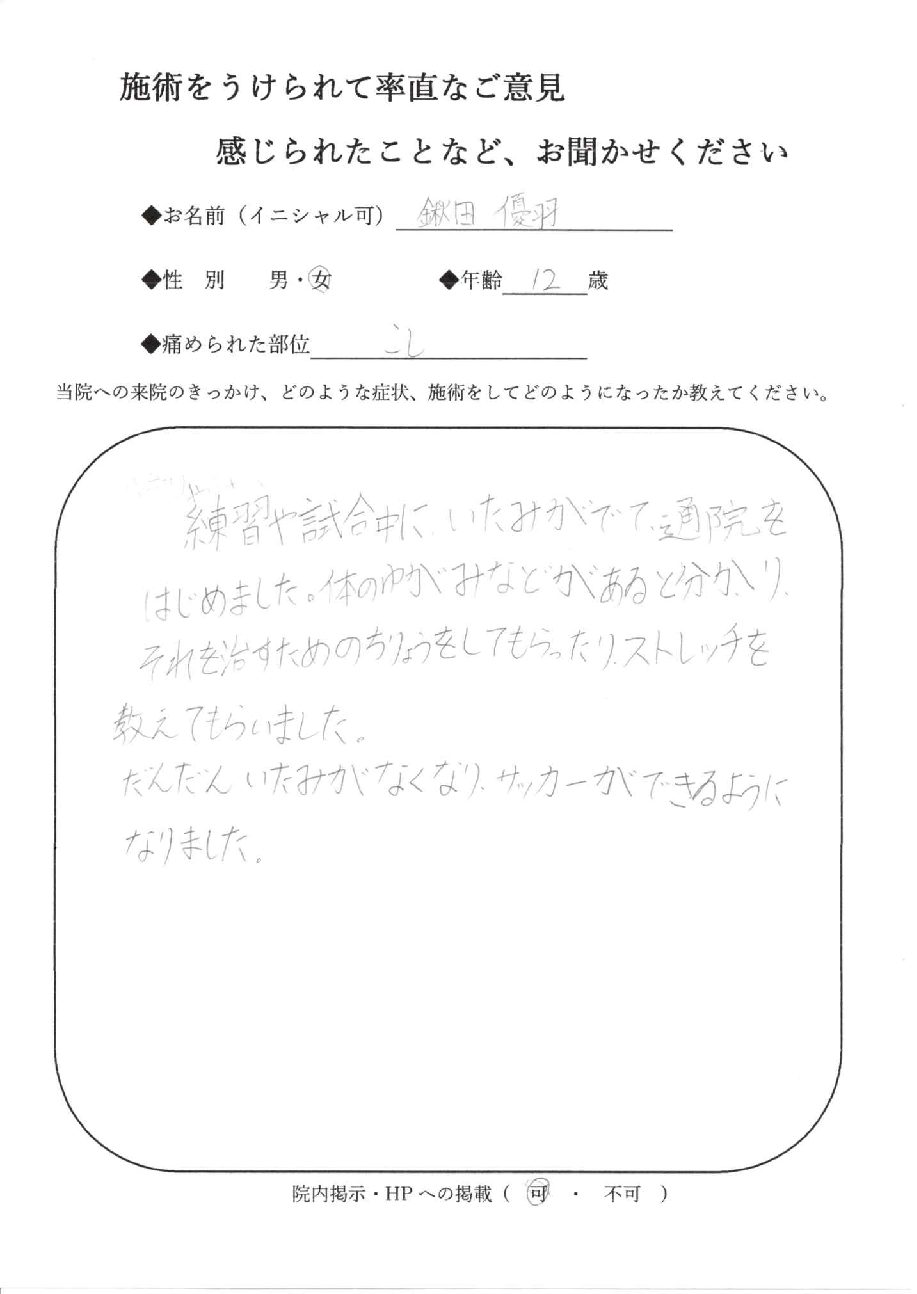 施術をうけられて率直なご意見
感じられたことなど、お聞かせください
◆お名前（イニシャル可） 鍬田 優羽
◆性 別 男・女 ◆年齢 12 歳
◆痛められた部位 こし
当院への来院のきっかけ、どのような症状、施術をしてどのようになったか教えてください。
練習や試合中に、いたみがでて、通院を
はじめました。体のゆがみなどがあると分かり、
それを治すためのちりょうをしてもらったり、ストレッチを
教えてもらいました。
だんだんいたみがなくなり、サッカーができるように
なりました。
院内掲示・HPへの掲載（ 可 ・ 不可 ）